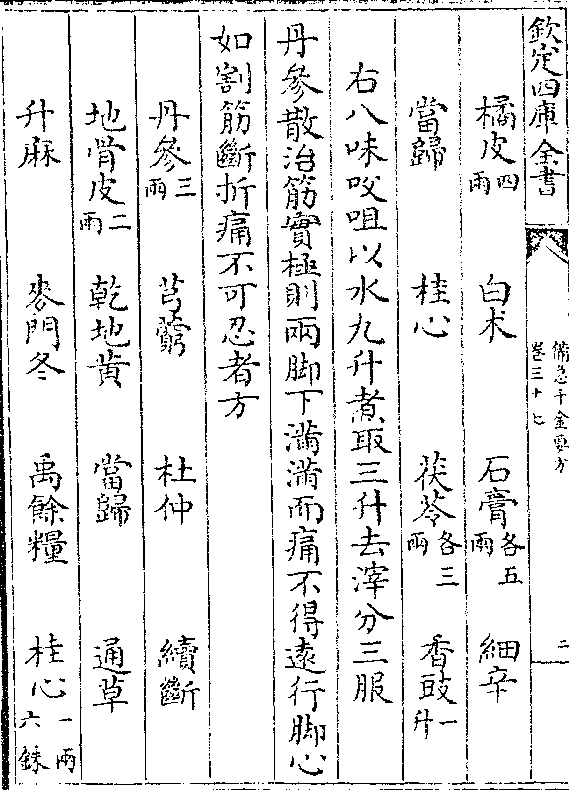 欽定四庫全書
備急千金要方
卷三十七
二
橘皮四兩 白术 石膏各五兩 細辛
當歸 桂心 茯苓各三兩 香豉一升
右八味㕮咀以水九升煮取三升去滓分三服
丹參散治筋實極則兩脚下滿滿而痛不得遠行脚心
如割筋斷折痛不可忍者方
丹參三兩 芎藭 杜仲 續斷
地骨皮二兩 乾地黄 當歸 通草
升麻 麥門冬 禹餘糧 桂心一兩六銖